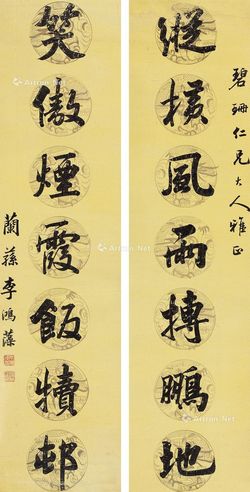 碧珊仁兄大人雅正
縱橫風雨摶鵬地
笑傲煙霞飯犢邨
蘭蓀李鴻藻
Artron.Net
Artron.Net